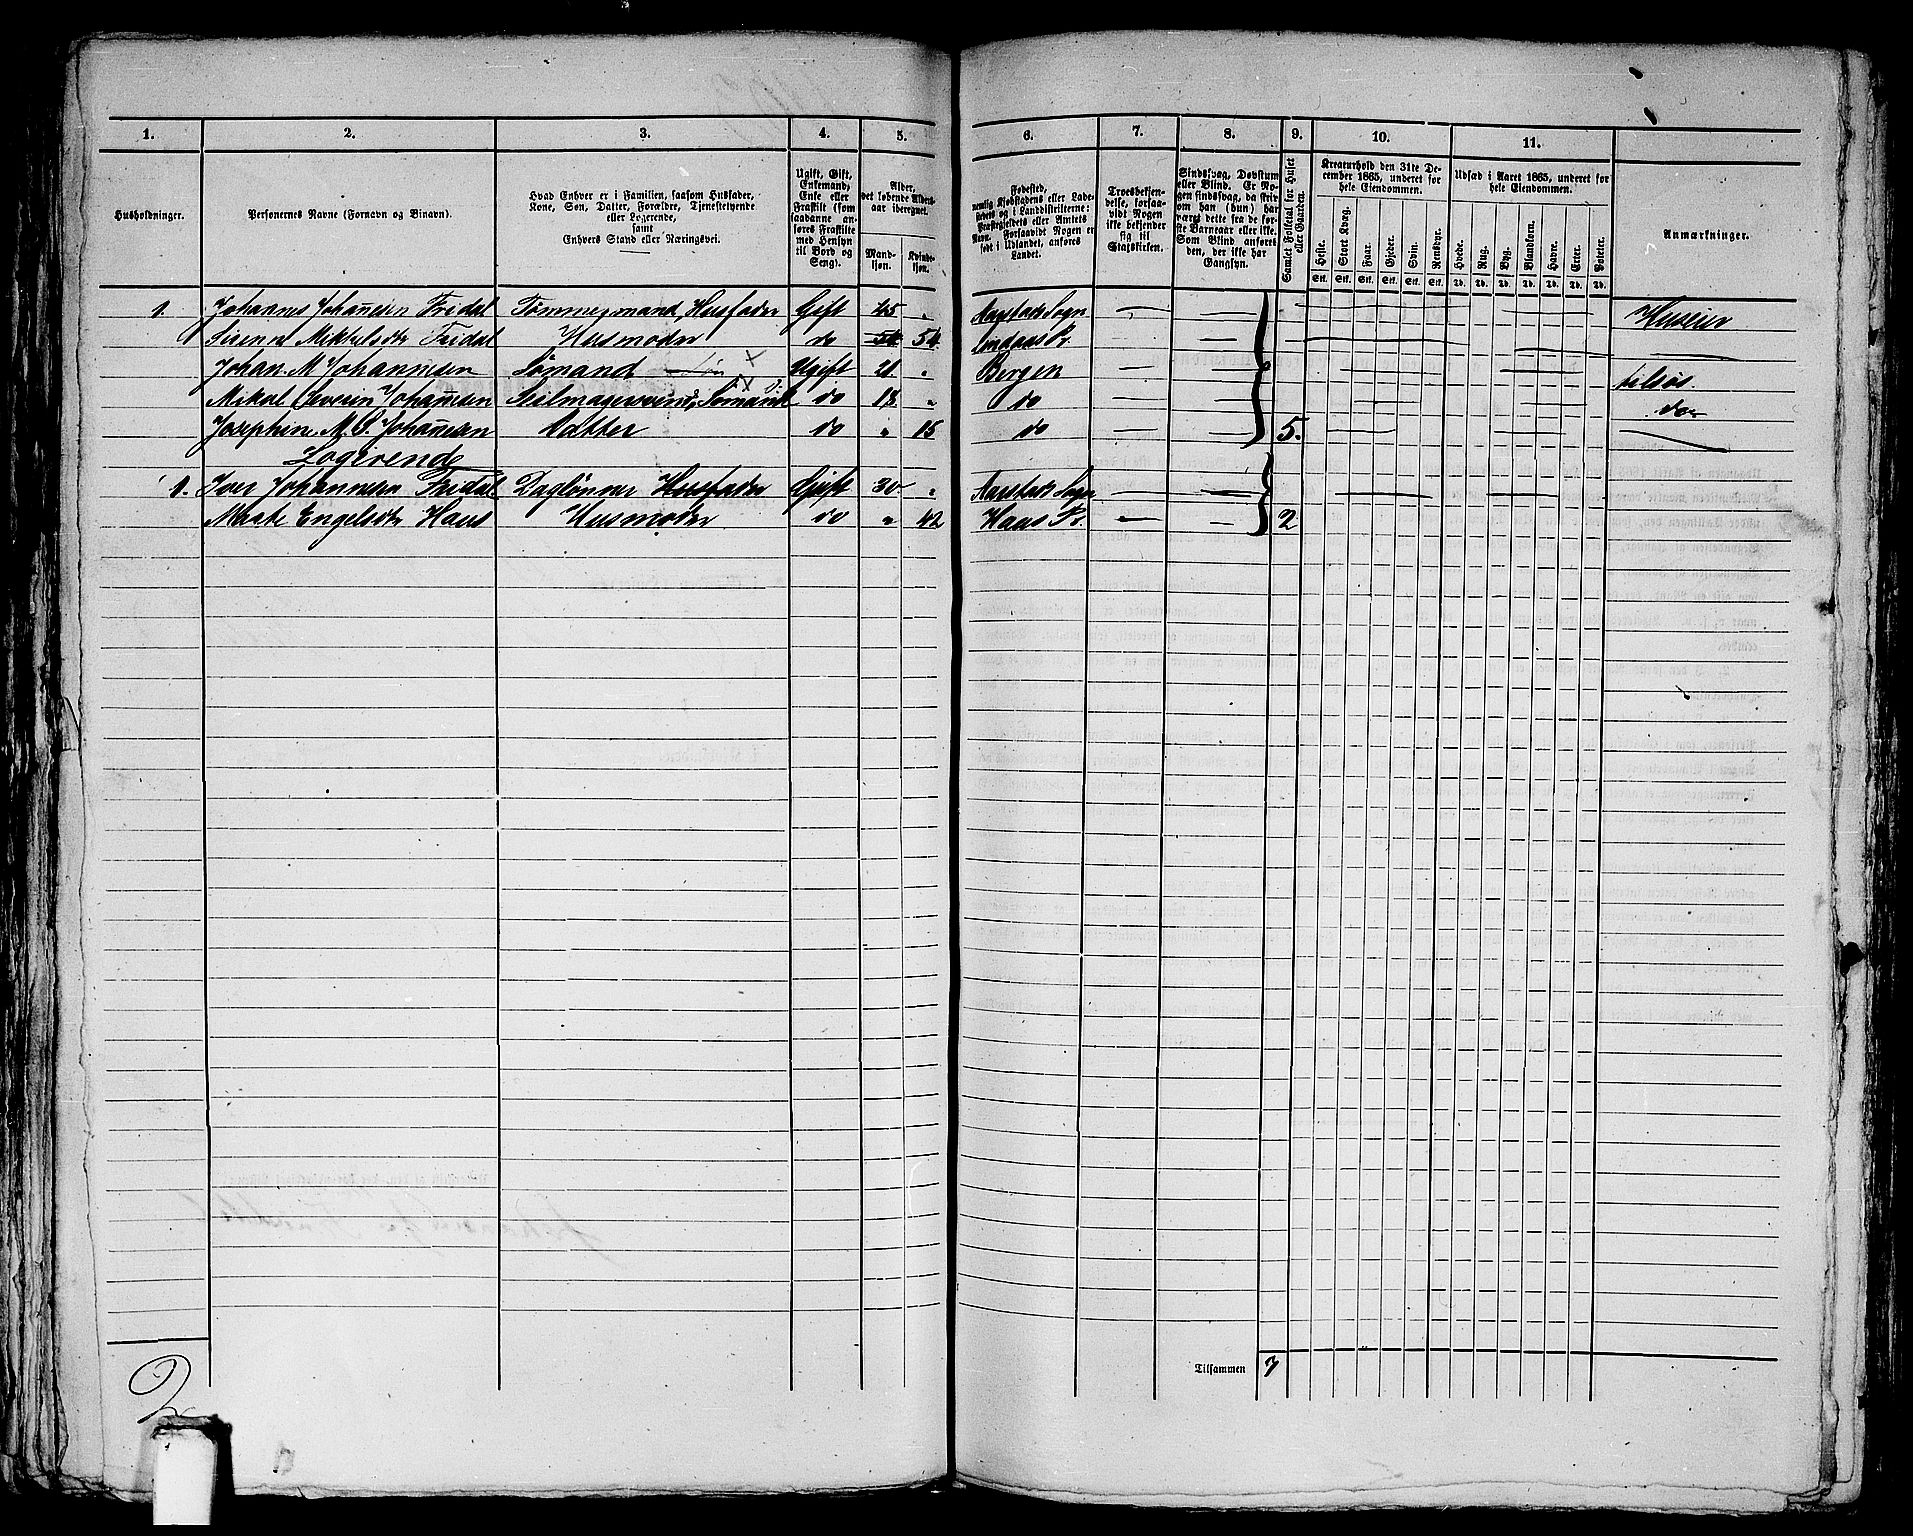 1. 2. 3. 4. 5. 6. 7. 8. 9. 10. 11.
Husholdninger.
Personernes Navne (Fornavn og Binavn).
Hvad Enhver er i Familien, saasom Husfader,
Kone, Søn, Datter, Forældre, Tjenestetyende
eller Logerende,
samt
Enhvers Stand eller Næringsvei.
Ugift, Gift,
Enkemand,
Enke eller
Fraskilt (som
saadanne an-
føres Fraskilte
med Hensyn
til Bord og
Seng).
Alder,
det løbende Alders-
aar iberegnet.
Mand-
kjøn.
Kvinde-
kjøn.
Fødested,
nemlig Kjøbstadens eller Lade-
stedets og i Landdistrikterne:
Præstegjeldets eller Amtets
Navn. Forsaavidt Nogen er
født i Udlandet, anføres
Landet.
Troesbekjen-
delse, forsaa-
vidt Nogen
ikke bekjender
sig til
Statskirken.
Sindssvag, Døvstum
eller Blind. Er No-
gen sindssvag, da skriv
om han (hun) har
været dette fra de før-
ste Barneaar eller ikke.
Som Blind anføres
den, der ikke har
Gangsyn.
Samlet Folketal for Huset
eller Gaarden.
Kreaturhold den 31te De-
cember 1865, underet for
hele Eiendommen.
Heste. Stort Kvæg. Faar. Gjeder. Svin. Rensdyr.
Stk. Stk. Stk. Stk. Stk. Stk.
Udsæd i Aaret 1865, underet for
hele Eiendommen.
Hvede. Rug. Byg. Blandkorn. Havre. Erter. Poteter.
Td. Td. Td. Td. Td. Td. Td.
Anmærkninger.
1. Johannes Johannesen Fridal Tømmermand, Husfader Gift 45 " Aarstads Sogn Huseier
Mikkelsdtr Fridal Husmoder do 54 54 Lindaas Pr.
Johan. M Johannesen Sømand Søn Ugift 21 " Bergen tilsøs
Mikal Severin Johannesen Seilmagersvend, Sømand do 18 " do do
Josephine M. Johannesen Datter do " 15 do 5.
Logerende
1. Iver Johannesen Fridal Daglønner Husfader Gift 30 " Aarstads Sogn
Engelsdtr Haus Husmoder do " 42 Haus Pr 2
Tilsammen 7
2